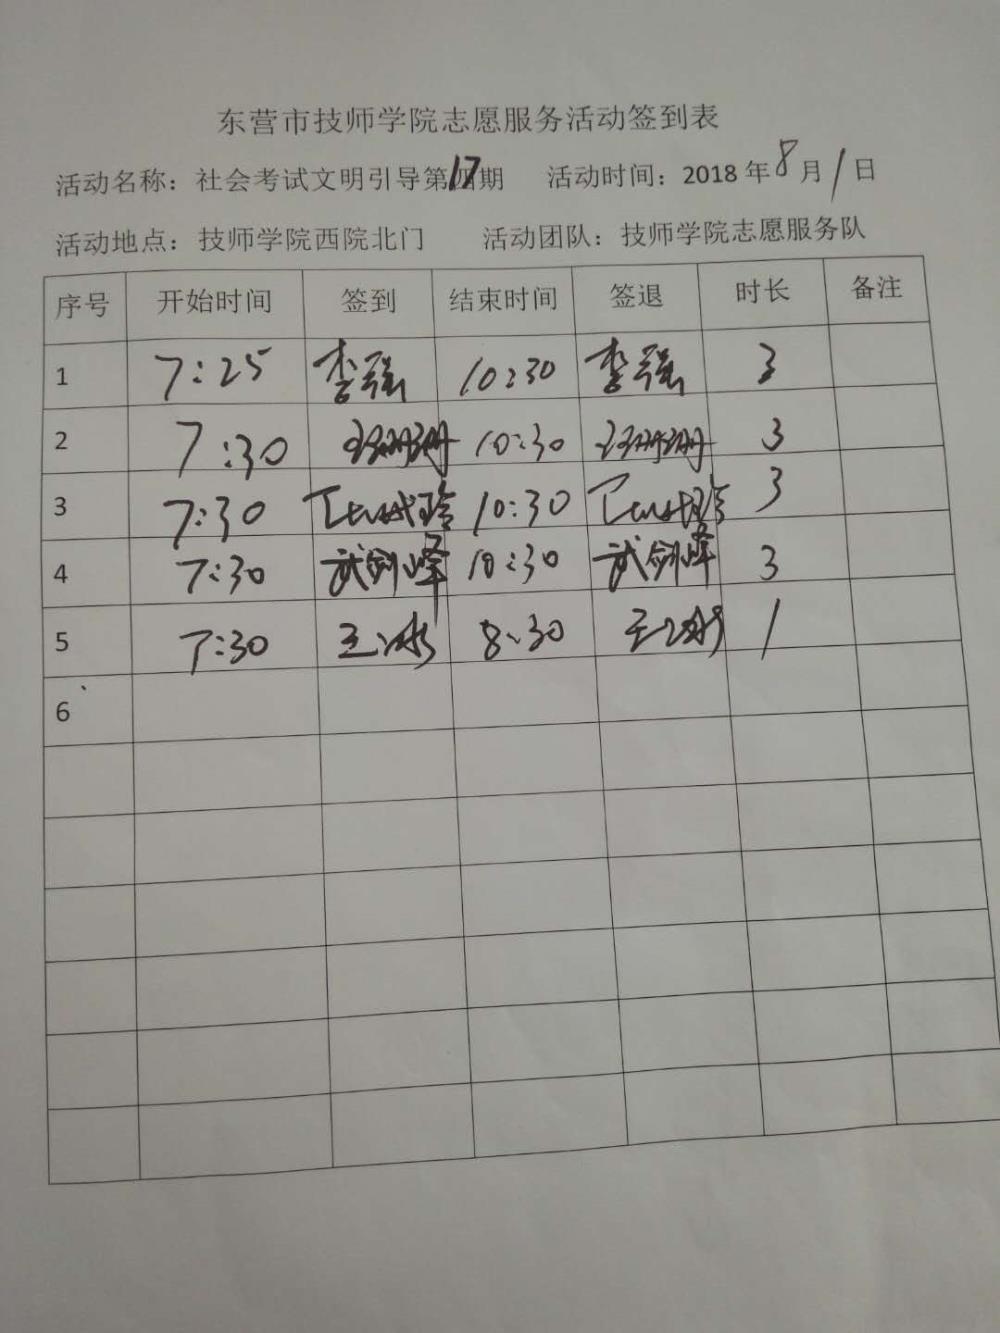 东营市技师学院志愿服务活动签到表
活动名称：社会考试文明引导第17期 活动时间：2018年8月1日
活动地点：技师学院西院北门 活动团队：技师学院志愿服务队
序号 开始时间 签到 结束时间 签退 时长 备注
1 7:25 李强 10:30 李强 3
2 7:30 10:30 3
3 7:30 10:30 3
4 7:30 武剑峰 10:30 武剑峰 3
5 7:30 王冰 8:30 王冰 1
6